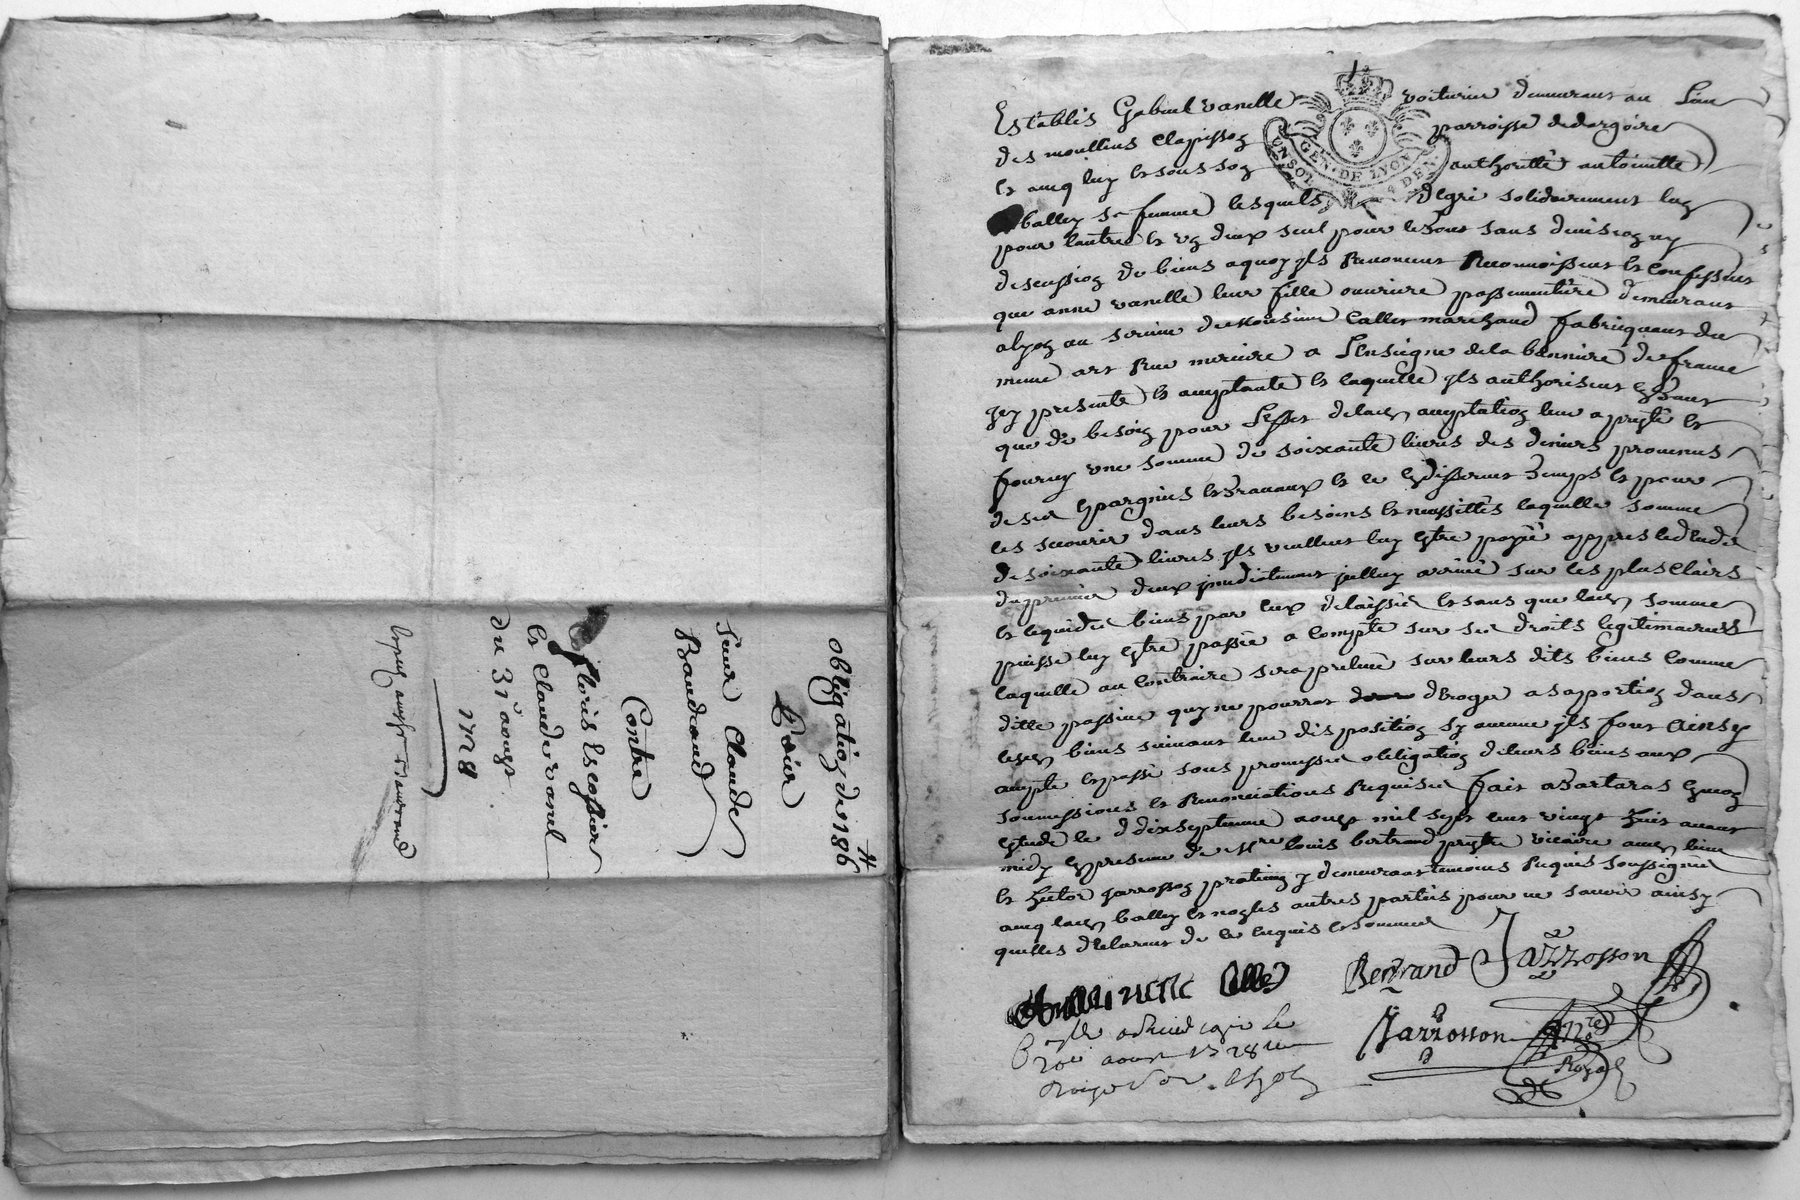 obligation de 186 ₶
Pour
Sieur Claude
Baudrand
Contre
floris Escoffier
et Claude vanel
du 31 aoust
1728
Establis Gabriel vanelle voiturier demeurant au Lieu
des moullins Clapisson parroisse de dargoire
et avecq luy et sous son authoritté antoinette
balley sa femme lesquels de gré solidairement lun
pour lautre et un deux seul pour le tout sans division ny
discussion de biens a quoy ils Renoncent Reconnoissent et Confessent
que anne vanelle leur fille ouvriere passementiere demeurant
a lyon au service de Monsieur Callet marchand fabriquant du
meme art Rue merciere a Lenseigne de la banniere de france
icy presente et acceptante et laquelle ils authorisent en tant
que de besoin pour Leffet de lad acceptation leur a preté et
fourny une somme de soixante livres des deniers provenus
de ses epargnes et travaux et ce en differents temps et pour
les secourir dans leurs besoins et necessittés laquelle somme
de soixante livres ils veullent luy etre payée appres le deces
du premier deux mourant sur les plus Clairs
et liquides biens par eux delaissés et sans que lad somme
puisse luy etre passée a Compte sur ses droits legitimaires
laquelle au Contraire sera prelevée sur leurs dits biens Comme
dette passive qui ne pourra deroger a sa portion dans
lesd biens suivant leur disposition sy aucune ils font ainsy
accepté et passé sous promesses obligation de leurs biens aux
soumissions et Renonciations Requises fait a tartaras en mon
etude le dixseptieme aoust mil sept cent vingt huit avant
midy en presence de Mre louis bertrand pretre vicaire aud lieu
et hector Jarrosson praticien y demeurant temoins Requis soussignés
avecq lad balley et non les autres parties pour ne savoir ainsy
quelles declarent de ce enquis et sommés
Bertrand Jarrosson
Jarrosson nre
Royal
GEN. DE LYON